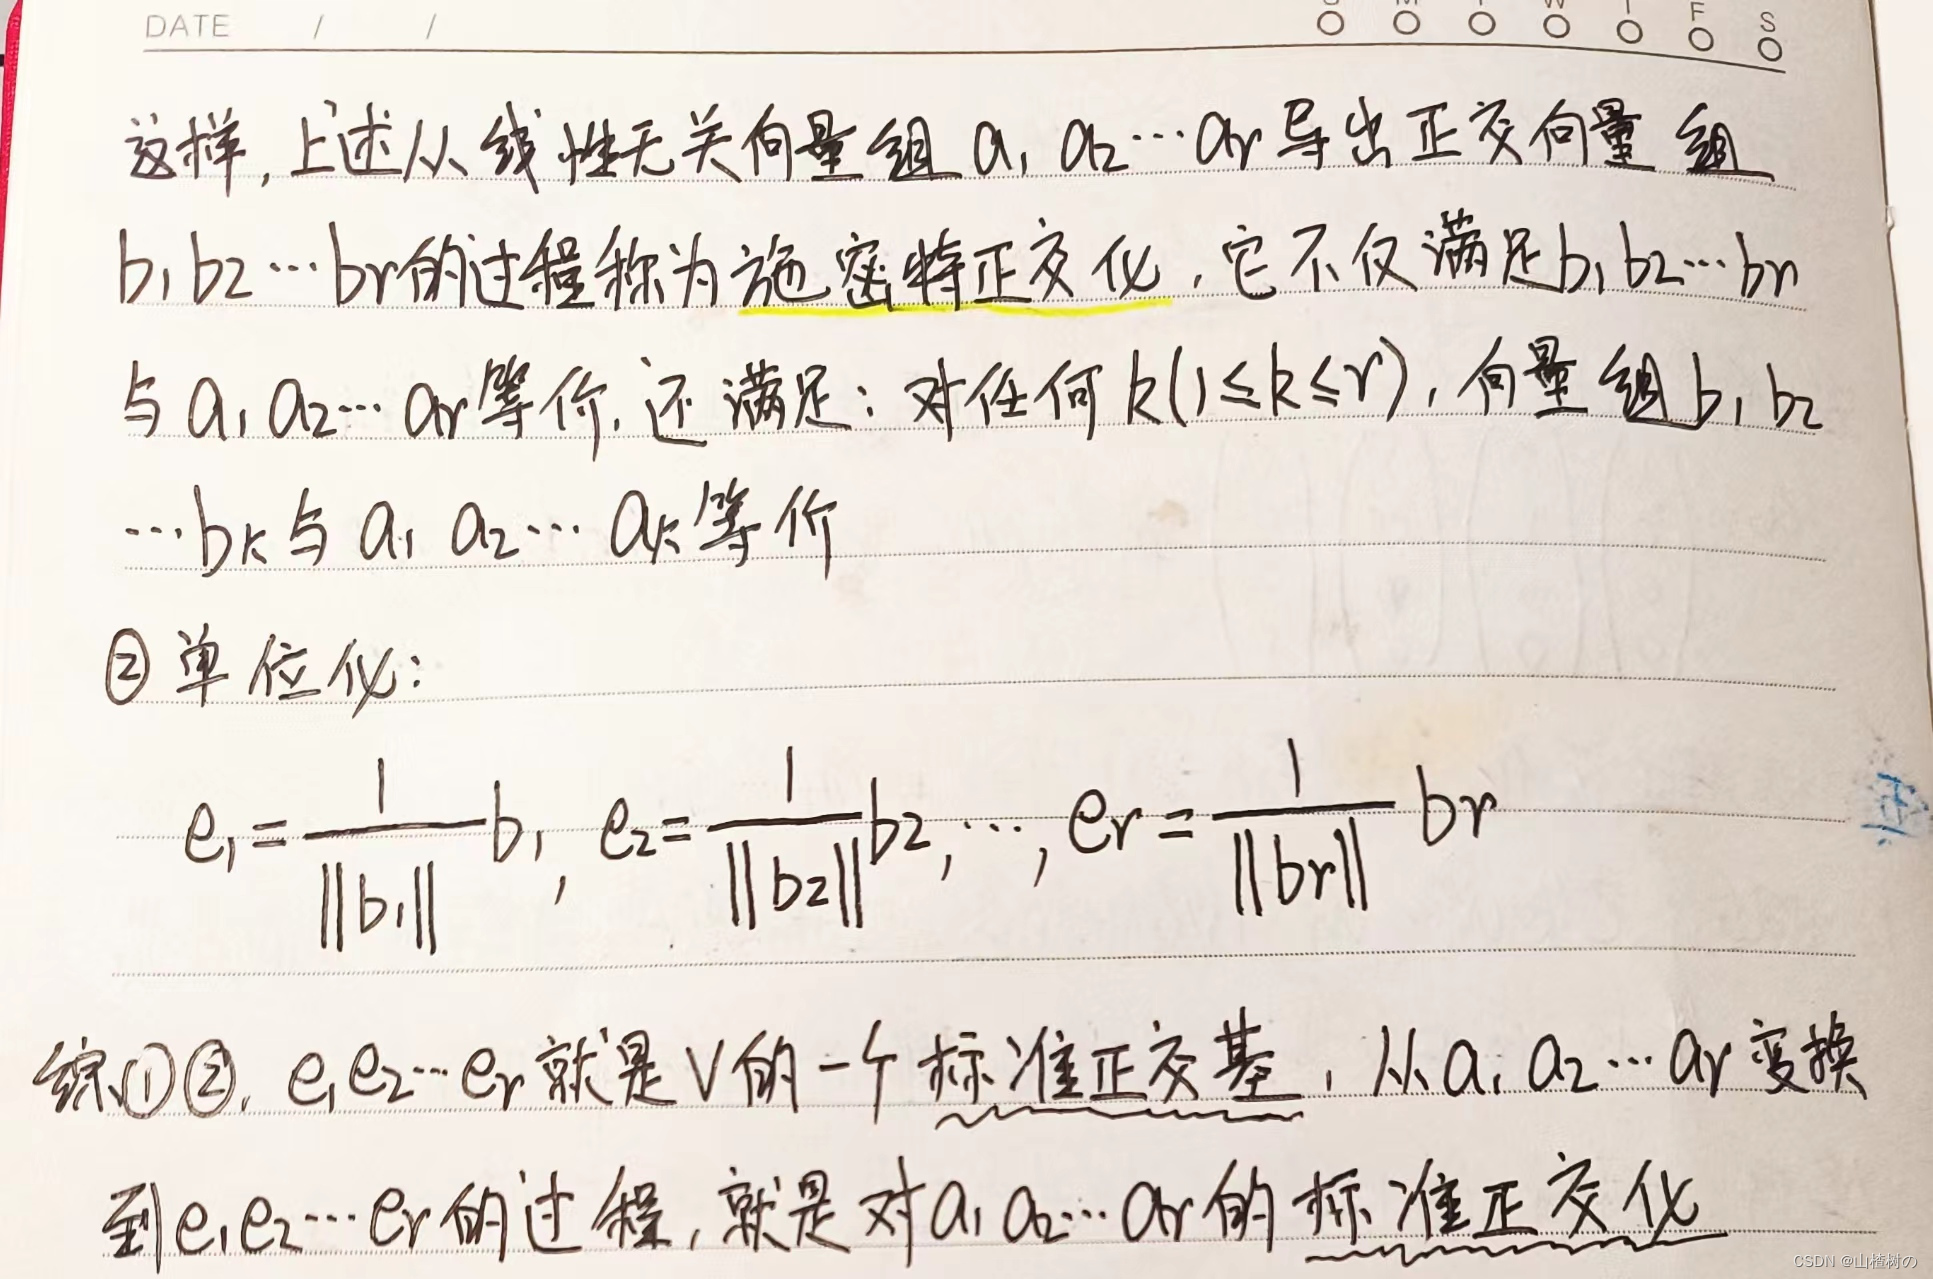 DATE / /
M T W T F S
这样,上述从线性无关向量组a₁ a₂…aᵣ导出正交向量组
b₁b₂…bᵣ的过程称为施密特正交化,它不仅满足b₁b₂…bᵣ
与a₁a₂…aᵣ等价,还满足:对任何k(1≤k≤r),向量组b₁b₂
…bₖ与a₁ a₂…aₖ等价
②单位化:
e₁=1/‖b₁‖ b₁, e₂=1/‖b₂‖ b₂,…, eᵣ=1/‖bᵣ‖ bᵣ
综①②,e₁e₂…eᵣ就是V的一个标准正交基,从a₁a₂…aᵣ变换
到e₁e₂…eᵣ的过程,就是对a₁a₂…aᵣ的标准正交化
CSDN @山楂树の